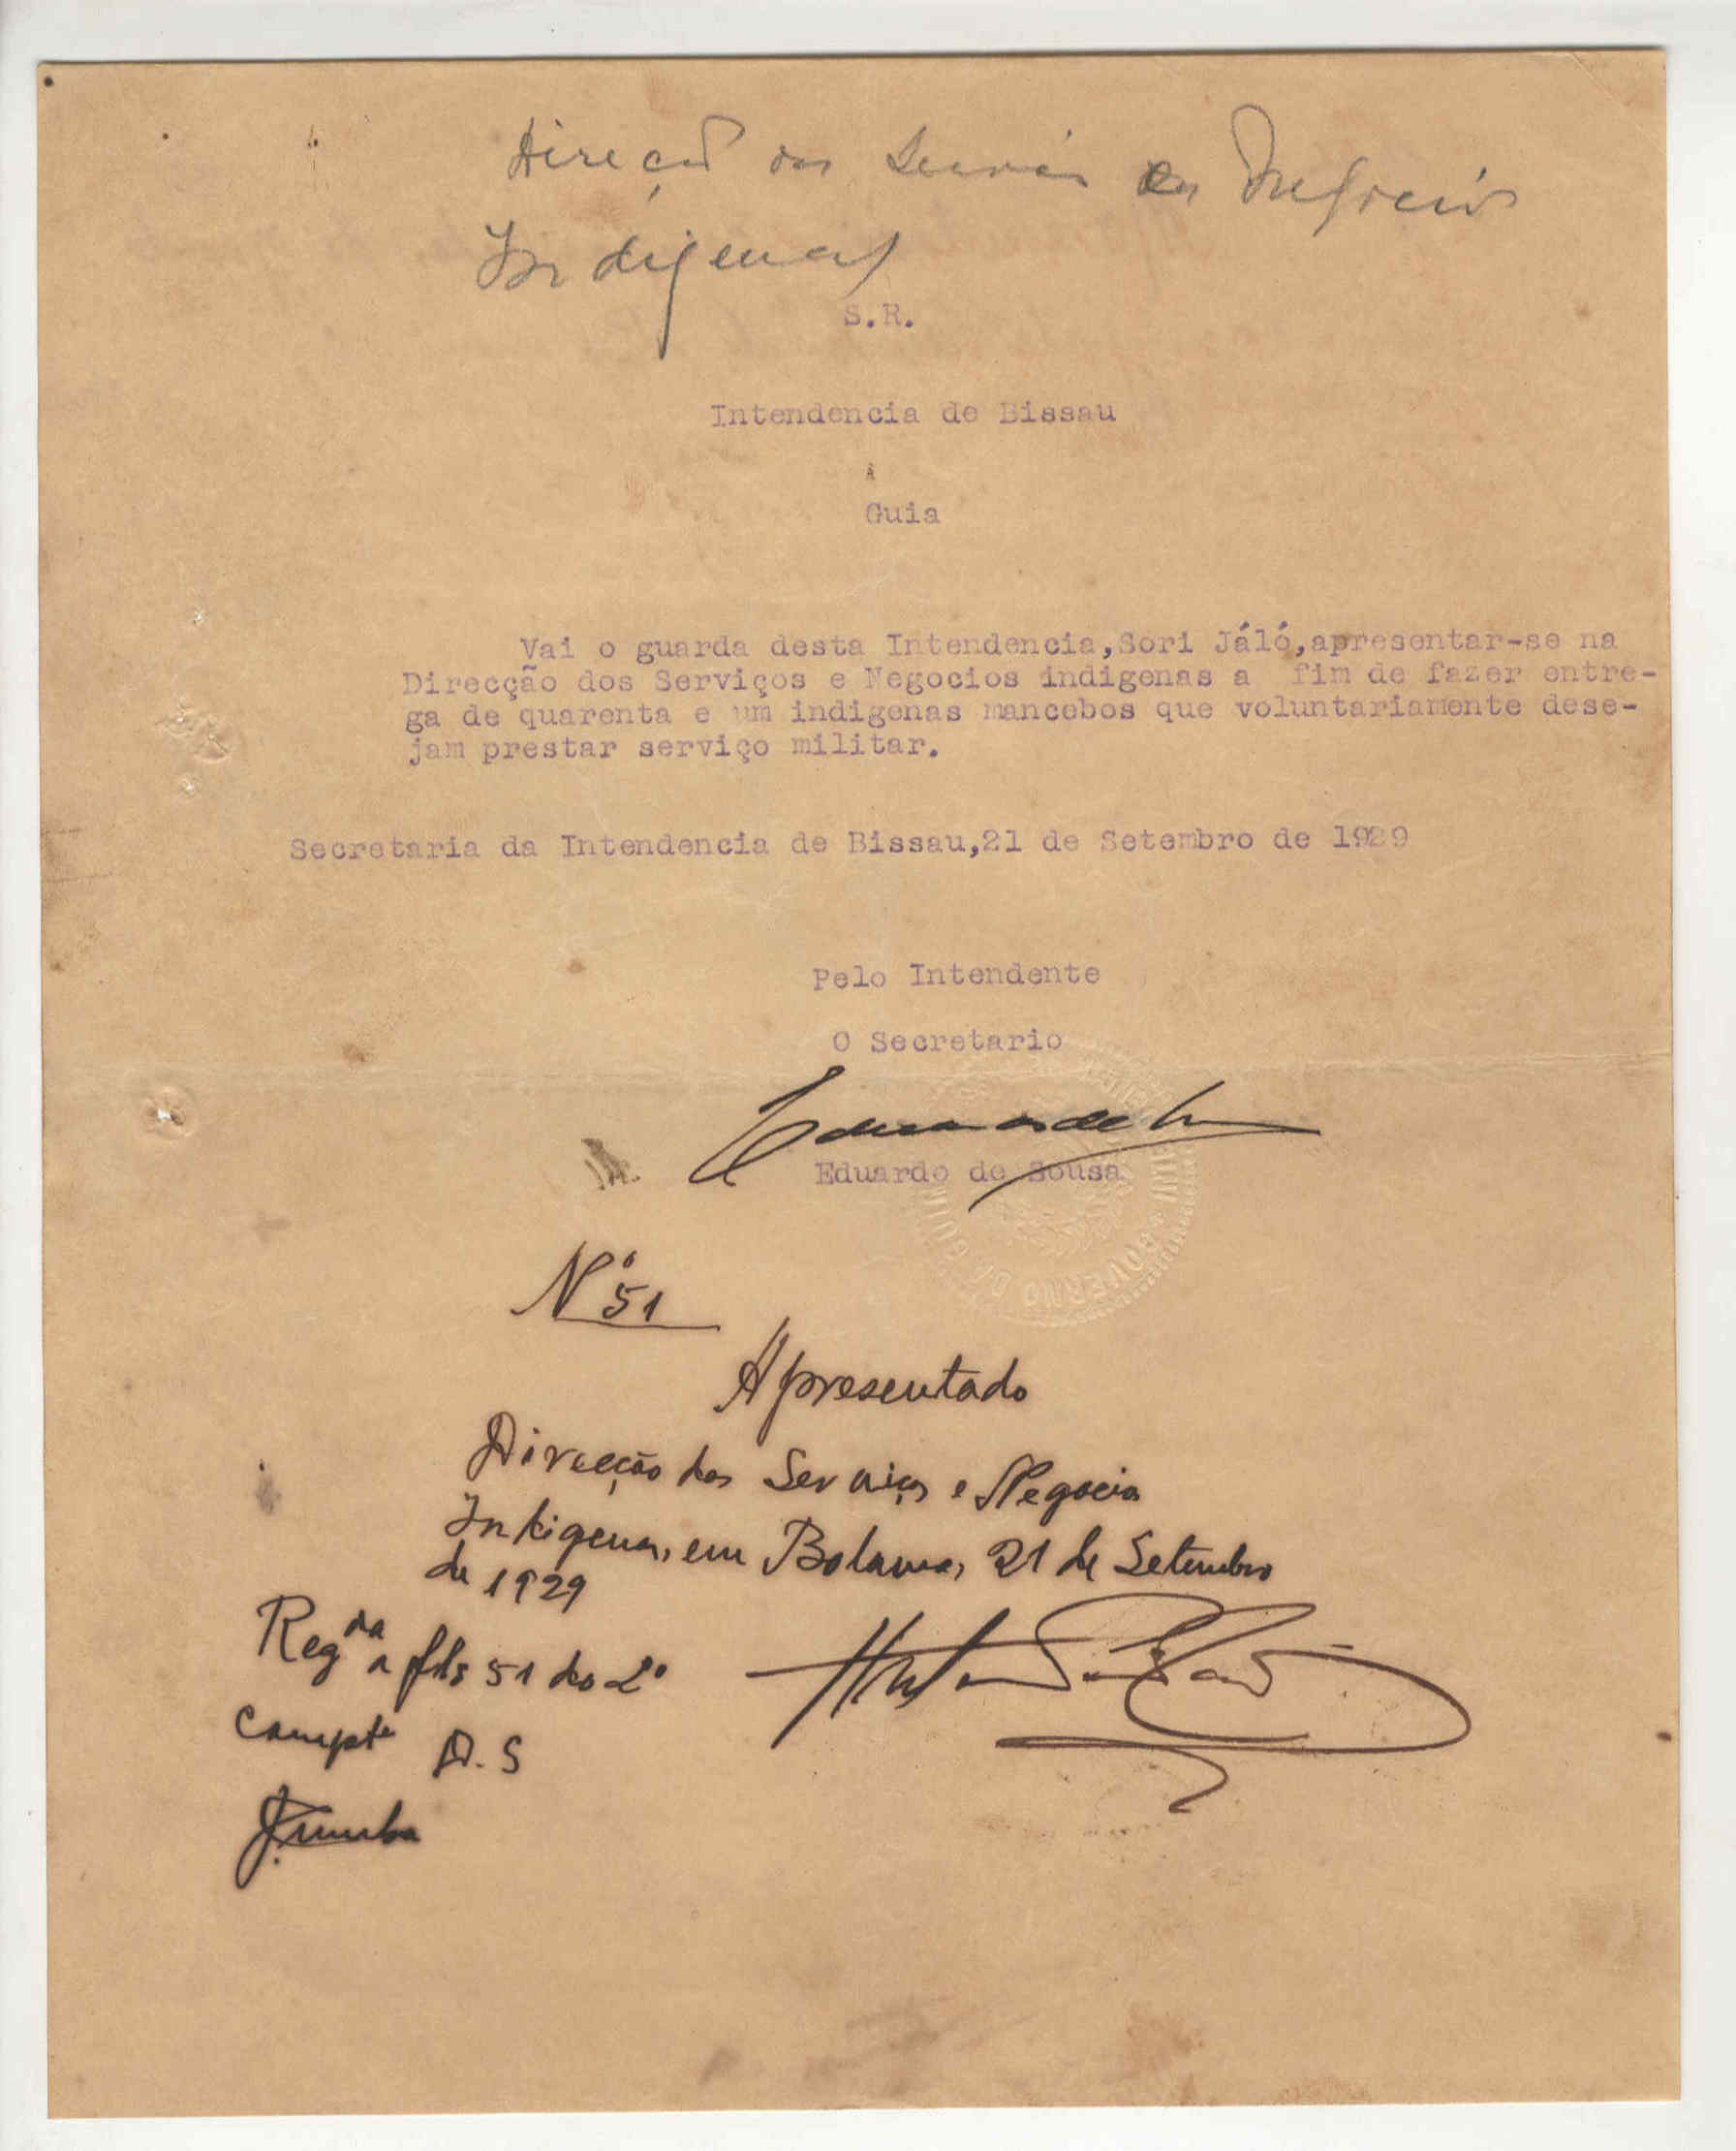 Direcção dos Serviços e Negocios
Indigenas
S.R.
Intendencia de Bissau
Guia
Vai o guarda desta Intendencia,Sori Jáló,apresentar-se na
Direcção dos Serviços e Negocios indigenas a fim de fazer entre-
ga de quarenta e um indigenas mancebos que voluntariamente dese-
jam prestar serviço militar.
Secretaria da Intendencia de Bissau,21 de Setembro de 1929
Pelo Intendente
O Secretario
Eduardo de Sousa
GOVERNO DA GUINÉ
Nº 51
Apresentado
Direcção dos Serviços e Negocios
Indigenas, em Bolama, 21 de Setembro
de 1929
Regda a fls 51 do 2º
D.S